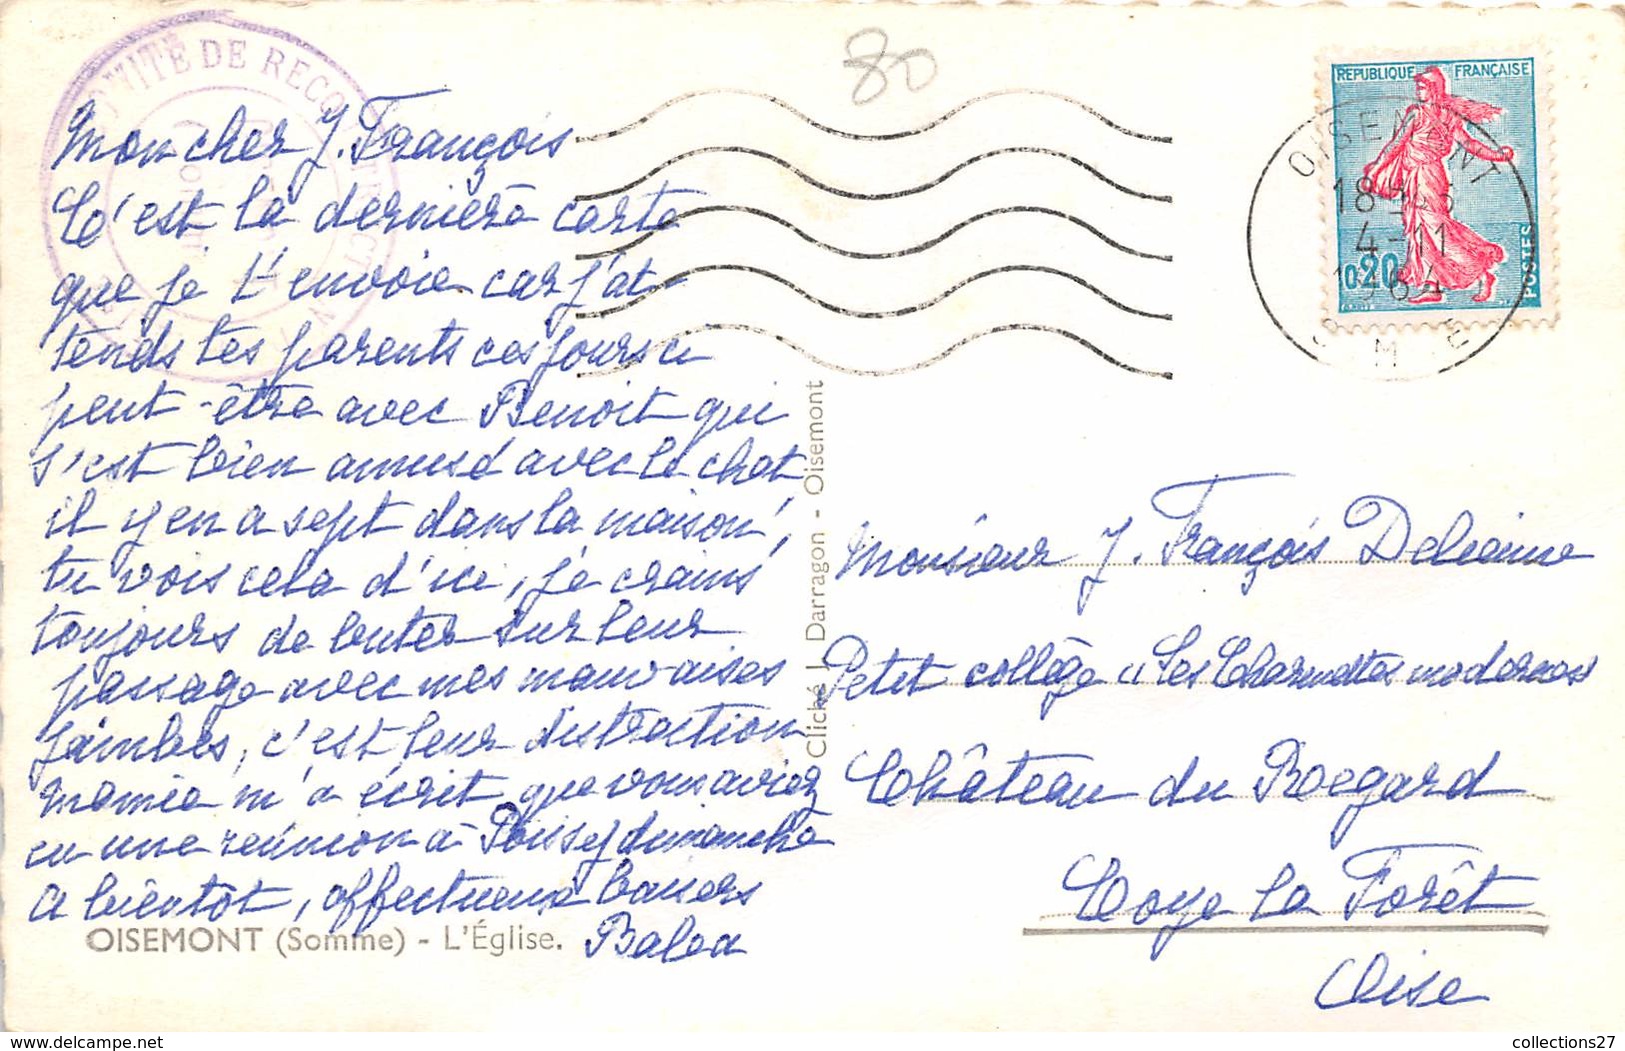 80
COMITÉ DE RECONSTRUCTION
REPUBLIQUE FRANÇAISE
0,20
POSTES
OISEMONT
18H
4-11
1964
SOMME
Mon cher J. François
C'est la dernière carte
que je t'envoie car j'at-
tends tes parents ces jours ci
peut-être avec Benoit qui
s'est bien amusé avec le chat
il y en a sept dans la maison,
tu vois cela d'ici, je crains
toujours de buter sur leur
passage avec mes mauvaises
jambes, c'est leur distraction
mamie m'a écrit que vous aviez
eu une réunion à Poissy dimanche
A bientôt, affectueux baisers
OISEMONT (Somme) - L'Église.
Cliché J. Darragon - Oisemont
Monsieur J. François
Petit collège "Les Charmettes modernes
Château du Regard
Coye la Forêt
Oise
collections27